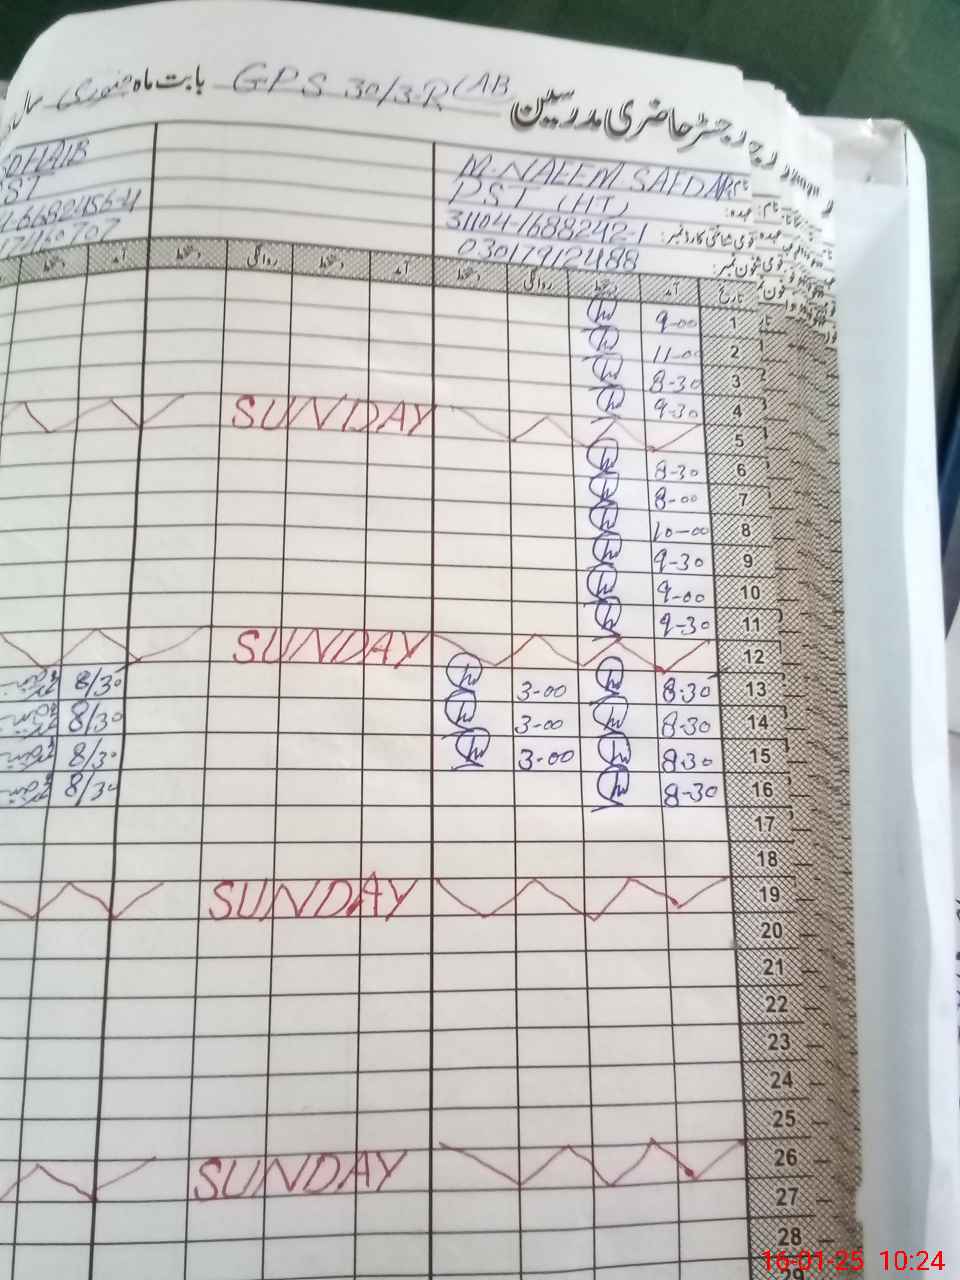 رجسٹر حاضری مدرسین GPS 30/3-R (AB بابت ماہ جنوری سال
نام: M-NAEEM SAEDAR
عہدہ: PST (HT)
قومی شناختی کارڈ نمبر: 31104-1688242-1
فون نمبر: 03017912488
OHAIB
ST
تاریخ آمد دستخط روانگی دستخط آمد دستخط روانگی دستخط آمد دستخط
1 9-00
2 11-00
3 8-30
4 9-30
5 SUNDAY
6 8-30
7 8-00
8 10-00
9 9-30
10 9-00
11 9-30
12 SUNDAY
13 8-30 3-00 8/30
14 8-30 3-00 8/30
15 8-30 3-00 8/30
16 8-30 8/30
17
18
19 SUNDAY
20
21
22
23
24
25
26 SUNDAY
27
28
29
16-01-25 10:24